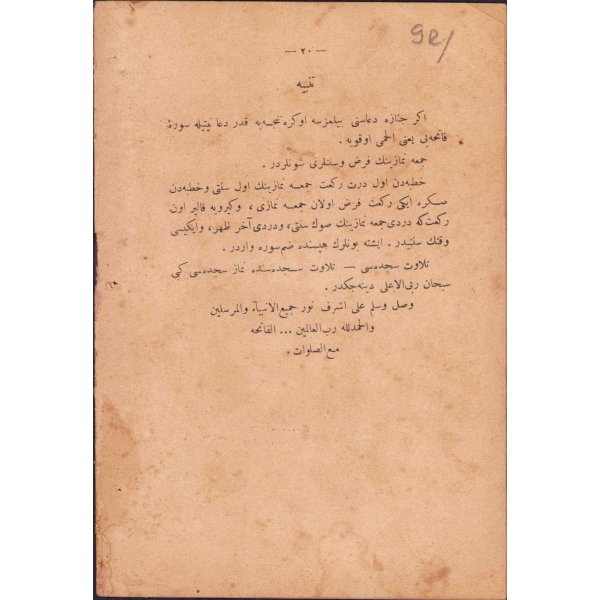 — ٢٠ —
تنبيه
اكر جنازه دعاسى بيلمزسه اوكره نجه يه قدر دعا نيتيله سورۀ
فاتحه يى يعنى الحمى اوقويه .
جمعه نمازينك فرض وسنتلرى شونلردر .
خطبه دن اول درت ركعت جمعه نمازينك اول سنتى وخطبه دن
صكره ايكى ركعت فرض اولان جمعه نمازى ، وكيرويه قالير اون
ركعت كه دردى جمعه نمازينك صوك سنتى ، ودردى آخر ظهر ، وايكيسى
وقتك سنتيدر . ايشته بونلرك هپسنده ضم سوره واردر .
تلاوت سجده سى — تلاوت سجده سنده نماز سجده سى كبى
سبحان ربى الاعلى دينه جكدر .
وصل وسلم على اشرف نور جميع الانبياء والمرسلين
والحمدلله رب العالمين ... الفاتحه
مع الصلوات .